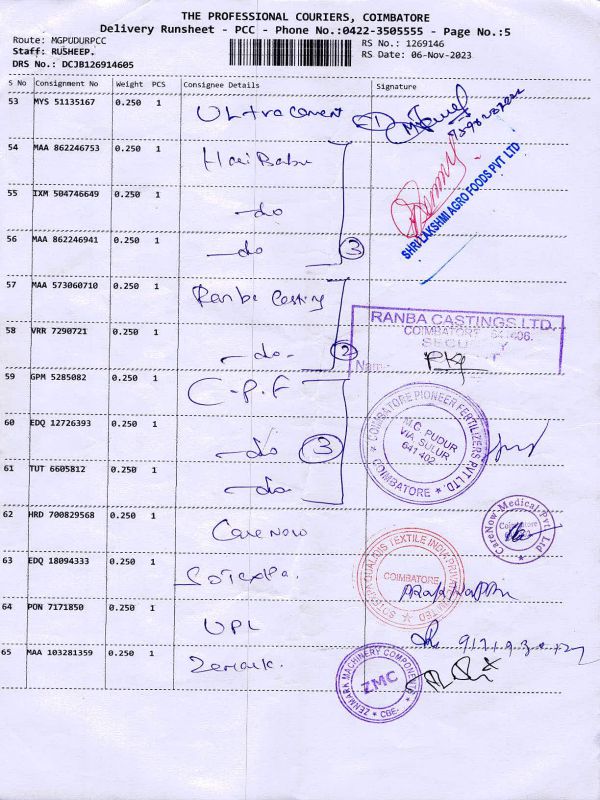 THE PROFESSIONAL COURIERS, COIMBATORE
Delivery Runsheet - PCC - Phone No.:0422-3505555 - Page No.:5
Route: MGPUDURPCC
Staff: RUSHEEP.
DRS No.: DCJB126914605
RS No.: 1269146
RS Date: 06-Nov-2023
S No Consignment No Weight PCS Consignee Details Signature
53 MYS 51135167 0.250 1 Ultracement 1
54 MAA 862246753 0.250 1 Hari Babu
55 IXM 504746649 0.250 1 -do
56 MAA 862246941 0.250 1 -do 3
SHRI LAKSHMI AGRO FOODS PVT LTD
57 MAA 573060710 0.250 1 Ranba Casting
58 VRR 7290721 0.250 1 -do- 2
RANBA CASTINGS LTD.
COIMBATORE 641406.
Nam
59 GPM 5285082 0.250 1 C.P.F
60 EDQ 12726393 0.250 1 -do 3
61 TUT 6605812 0.250 1 -do-
COIMBATORE PIONEER FERTILIZERS PVT LTD
M.G. PUDUR
VIA SULUR
641 402
COIMBATORE
62 HRD 700829568 0.250 1 Carenow
CareNow Medical Pvt Ltd
Coimbatore
63 EDQ 18094333 0.250 1
TEXTILE INDIA PRIVATE LIMITED
COIMBATORE
64 PON 7171850 0.250 1 UPL
65 MAA 103281359 0.250 1 Zenmark.
ZENMARK MACHINERY COMPONENTS
ZMC
CBE.